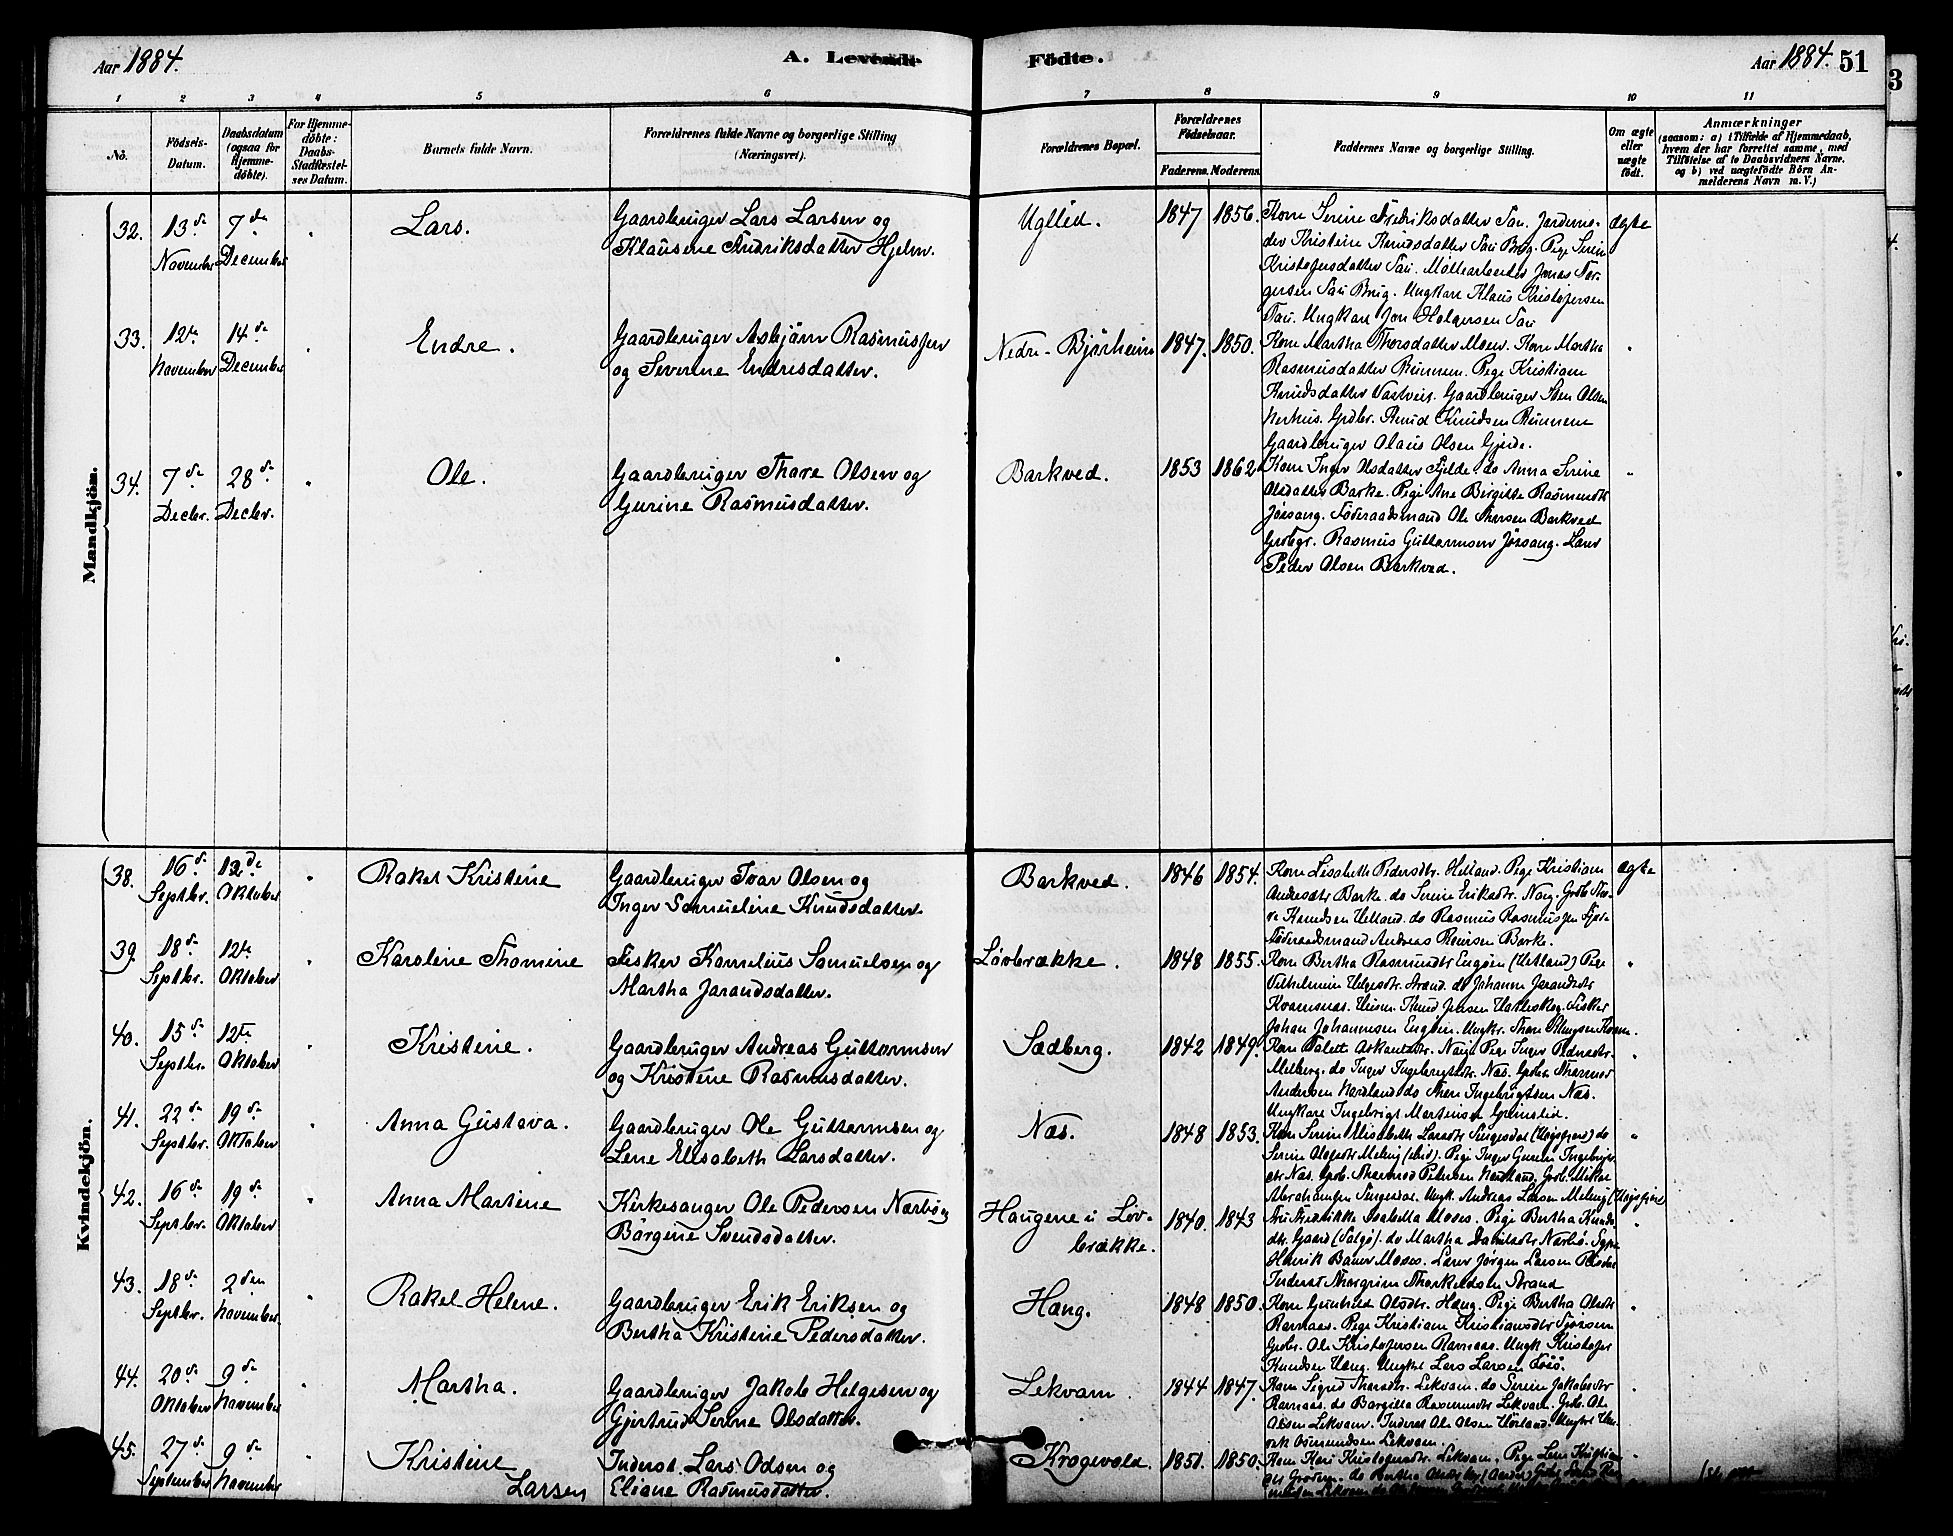 Aar 1884.
A. Levende Födte.
Aar 1884. 51
3
1 2 3 4 5 6 7 8 9 10 11
No.
Födsels-Datum.
Daabsdatum (ogsaa for Hjemme-döbte).
For Hjemme-döbte: Daabs-Stadfæstel-ses Datum.
Barnets fulde Navn.
Forældrenes fulde Navne og borgerlige Stilling (Næringsvei).
Forældrenes Bopæl.
Forældrenes Födselsaar.
Faderens. Moderens.
Faddernes Navne og borgerlige Stilling.
Om ægte eller uægte födt.
Anmærkninger
(saasom: a) i Tilfælde af Hjemmedaab,
hvem der har forrettet samme, med
Tilföielse af to Daabsvidners Navne.
og b) ved uægtefödte Börn An-
melderens Navn m. V.)
Mandkjön.
32. 13de November 7de December " Lars.
Gaardbruger Lars Larsen og
Klausine Fredriksdatter Hjelm.
Uglied. 1847 1856.
Kone Serine Fredriksdatter Tau. Jordemo-
der Kristine Knudsdatter Tau Brug. Pige Serine
Kristofersdatter Tau. Møllearbeider Jonas Tor-
gersen Tau Brug. Ungkare Klaus Kristofersen
Tau. Ungkare Jon Holgersen Tau
ægte
33. 12te November 14de December " Endre.
Gaardbruger Asbjørn Rasmussen
og Severine Endresdatter.
Nedre-Bjørheim 1847. 1850.
Kone Martha Thorsdatter Moen. Kone Martha
Rasmusdatter Runnem. Pige Kristiane
Knudsdatter Vastveit. Gaardbruger Sven Olsen
Nerhus. Grdbr. Knud Knudsen Runnem
Gaardbruger Olaus Olsen Gjerde.
"
34. 7de Decbr. 28de Decbr. " Ole.
Gaardbruger Thore Olsen og
Gurine Rasmusdatter.
Barkved. 1853 1862
Kone Inger Olsdatter Fjelde. do Anna Serine
Olsdatter Barke. Pige Ane Birgitte Rasmusdtr
Jøssang. Føderaadsmand Ole Thorsen Barkved
Grdbgr. Rasmus Guttormsen Jøssang. Lærer
Peder Olsen Barkved.
"
Kvindekjön.
38. 16de Septbr. 12de Oktober " Rakel Kristine
Gaardbruger Ivar Olsen og
Inger Samueline Knudsdatter.
Barkved. 1846 1854.
Kone Lisabeth Pedersdtr. Helland. Pige Kristiane
Andersdtr Barke. do Serine Eriksdtr. Nag. Grdb. Tho-
re Knudsen Helland. do Rasmus Rasmussen
Føderaadsmand Andreas Barke.
ægte
39. 18de Septbr. 12te Oktober " Karoline Thomine
Fisker Kornelius Samuelsen og
Martha Jarandsdatter.
Løvbrække. 1848 1855.
Kone Bertha Rasmusdtr Engøen (Hetland) Pige
Vilhelmine Helgesdtr. Strand. do Johanne Jarandsdtr
Kvamsnæs. Husm. Knud Jensen Hatleskog. Fisker
Johan Johannesen Engøen. Ungkr.
"
40. 15de Septbr. 12te Oktober " Kristine.
Gaardbruger Andreas Guttormsen
og Kristine Rasmusdatter.
Sædberg. 1842 1849.
Kone Pige Inger Pedersdtr.
Melberg. do Inger Ingebrigtsdtr. Næs. Grdbr. Thormod
Andersen Nordland do Thore Ingebrigtsen Næs.
Ungkare Ingebrigt Martinsen Grimslid.
"
41. 22de Septbr. 19de Oktober " Anna Gustava.
Gaardbruger Ole Guttormsen og
Lene Elisabeth Larsdatter.
Næs. 1848 1853.
Kone Serine Elisabeth Larsdtr Tingesdal (Høgsfjord) do
Serine Olsdtr Meling (ibid). Pige Inger Gurine Ingebrigt-
dtr Næs. Grdb. Thormod Nordland. Grdb. Mikkel
Abrahamsen Tingesdal. Ungk. Andreas Larsen Meling (Høgsfjord
"
42. 16de Septbr. 19de Oktober " Anna Martine
Kirkesanger Ole Pedersen Nærbø og
Børgine Svendsdatter.
Haugene i Løv-
brække. 1840 1843
Fru Fredrikke Isabella Moses. Pige Bertha Knuds-
dtr. Gaard (Talgø). do Martha Danielsdtr Nærbø.
Henrik Bauer Moses. Lærer Jørgen Larsen
Inderst Thorgrim Thorkeldsen Strand
"
43. 18de Septbr. 2den November " Rakel Helene.
Gaardbruger Erik Eriksen og
Bertha Kristine Pedersdatter.
Hæng. 1848 1850.
Kone Gunhild Olsdtr. Hæng. Pige Bertha Olsdtr
Ramsaas. Pige Kristiane Kristiansdtr
Grdbr. Ole Kristofersen Ramsaas. Ungk Kristofer
Knudsen Hæng. Ungkr. Lars Larsen
"
44. 20de Oktober 9de November " Martha.
Gaardbruger Jakob Helgesen og
Gjertrud Serine Olsdatter.
Lekvam. 1844 1847.
Kone Sigrid Thorsdtr. Lekvam. do Serine Jakobsdtr
Ramsaas. do Bergitta Rasmusdtr Lekvam. Grdb. Ole
Olsen Lekvam. Inderst Ole Olsen Ungkr Hen-
rik Osmundsen Lekvam
"
45. 27de September 9de November " Kristine
Larsen
Inderst. Lars Odsen og
Eliane Rasmusdatter.
Krogevold. 1851. 1850.
Kone Kari Kristofersdtr. Lekvam. Pige Lene
"